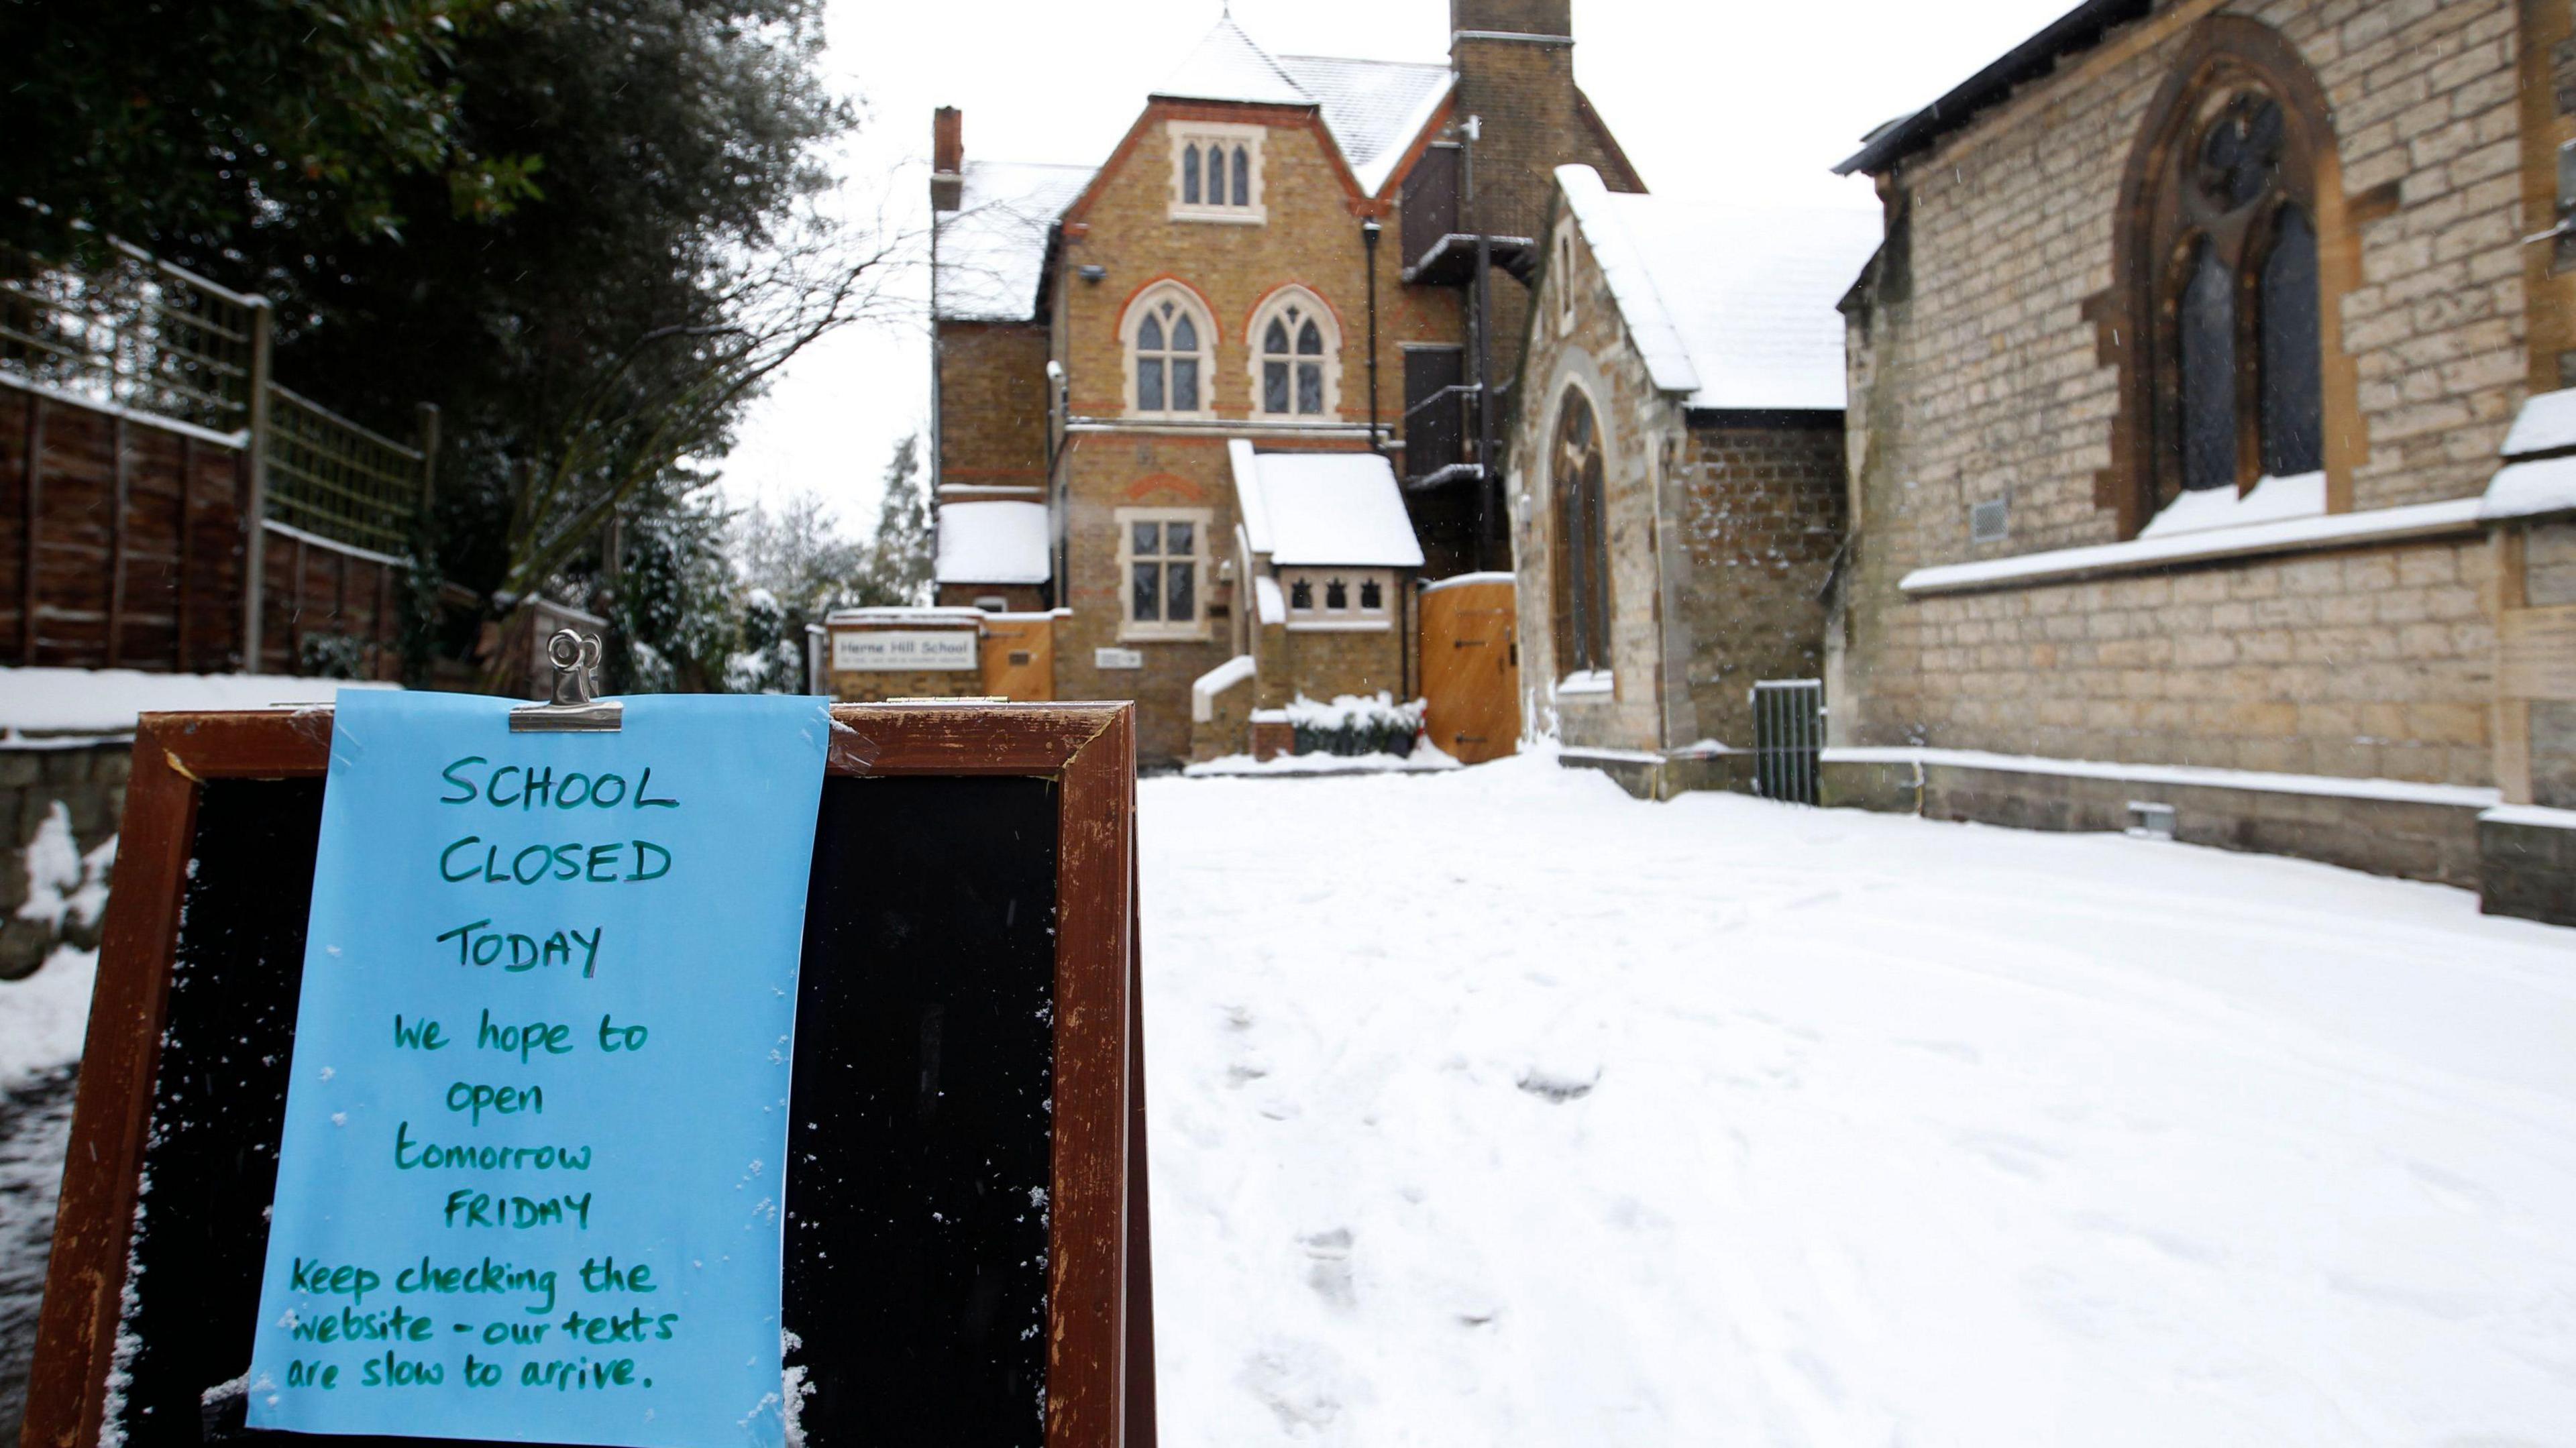 Herne Hill School
SCHOOL
CLOSED
TODAY
We hope to
open
tomorrow
FRIDAY
Keep checking the
website - our texts
are slow to arrive.